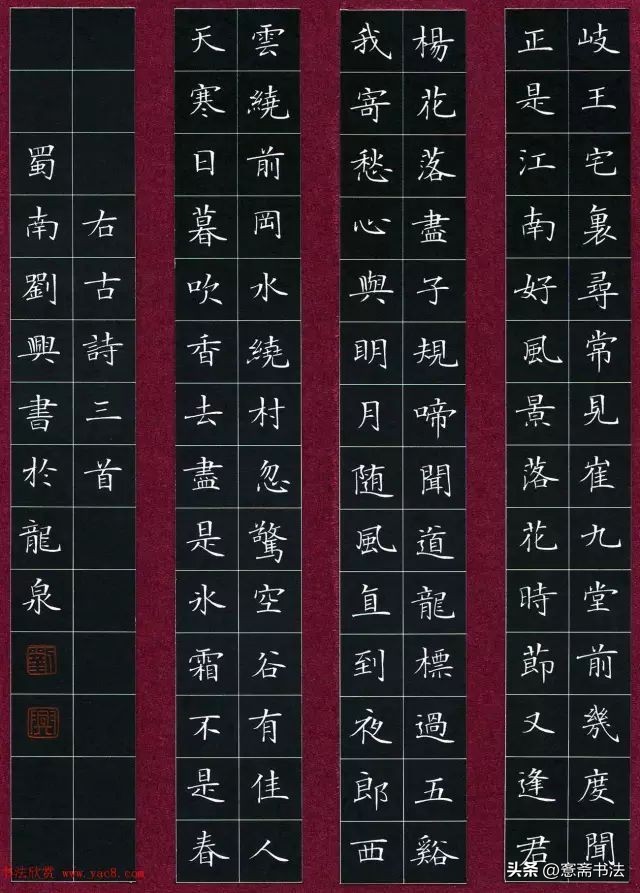 岐王宅裏尋常見崔九堂前幾度聞
正是江南好風景落花時節又逢君
楊花落盡子規啼聞道龍標過五谿
我寄愁心與眀月随風直到夜郎西
雲繞前岡水繞村忽驚空谷有佳人
天寒日暮吹香去盡是氷霜不是春
右古詩三首
蜀南劉興書於龍泉
劉
興
书法欣赏 www.yac8.com
头条 @斋书法